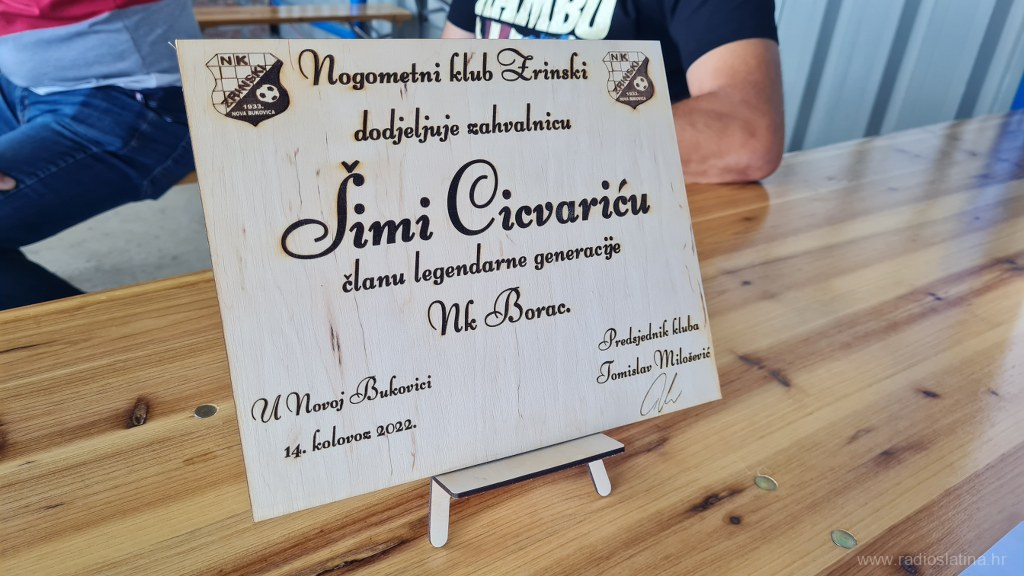 NK
ZRINSKI
1933.
NOVA BUKOVICA
Nogometni klub Zrinski
NK
ZRINSKI
1933.
NOVA BUKOVICA
dodjeljuje zahvalnicu
Šimi Cicvariću
članu legendarne generacije
Nk Borac.
Predsjednik kluba
Tomislav Milošević
U Novoj Bukovici
14. kolovoz 2022.
RAMBO
www.radioslatina.hr